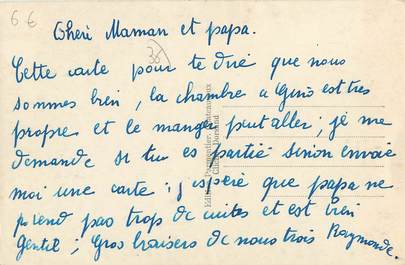 6 €
36
Cheri Maman et papa.
Cette carte pour te dire que nous
sommes bien, la chambre a Guis est tres
propre et le manger peut aller; je me
demande si tu es partie sinon envoie
moi une carte; j'espère que papa ne
prend pas trop de cuites et est bien
gentil; Gros baisers de nous trois Raymonde.